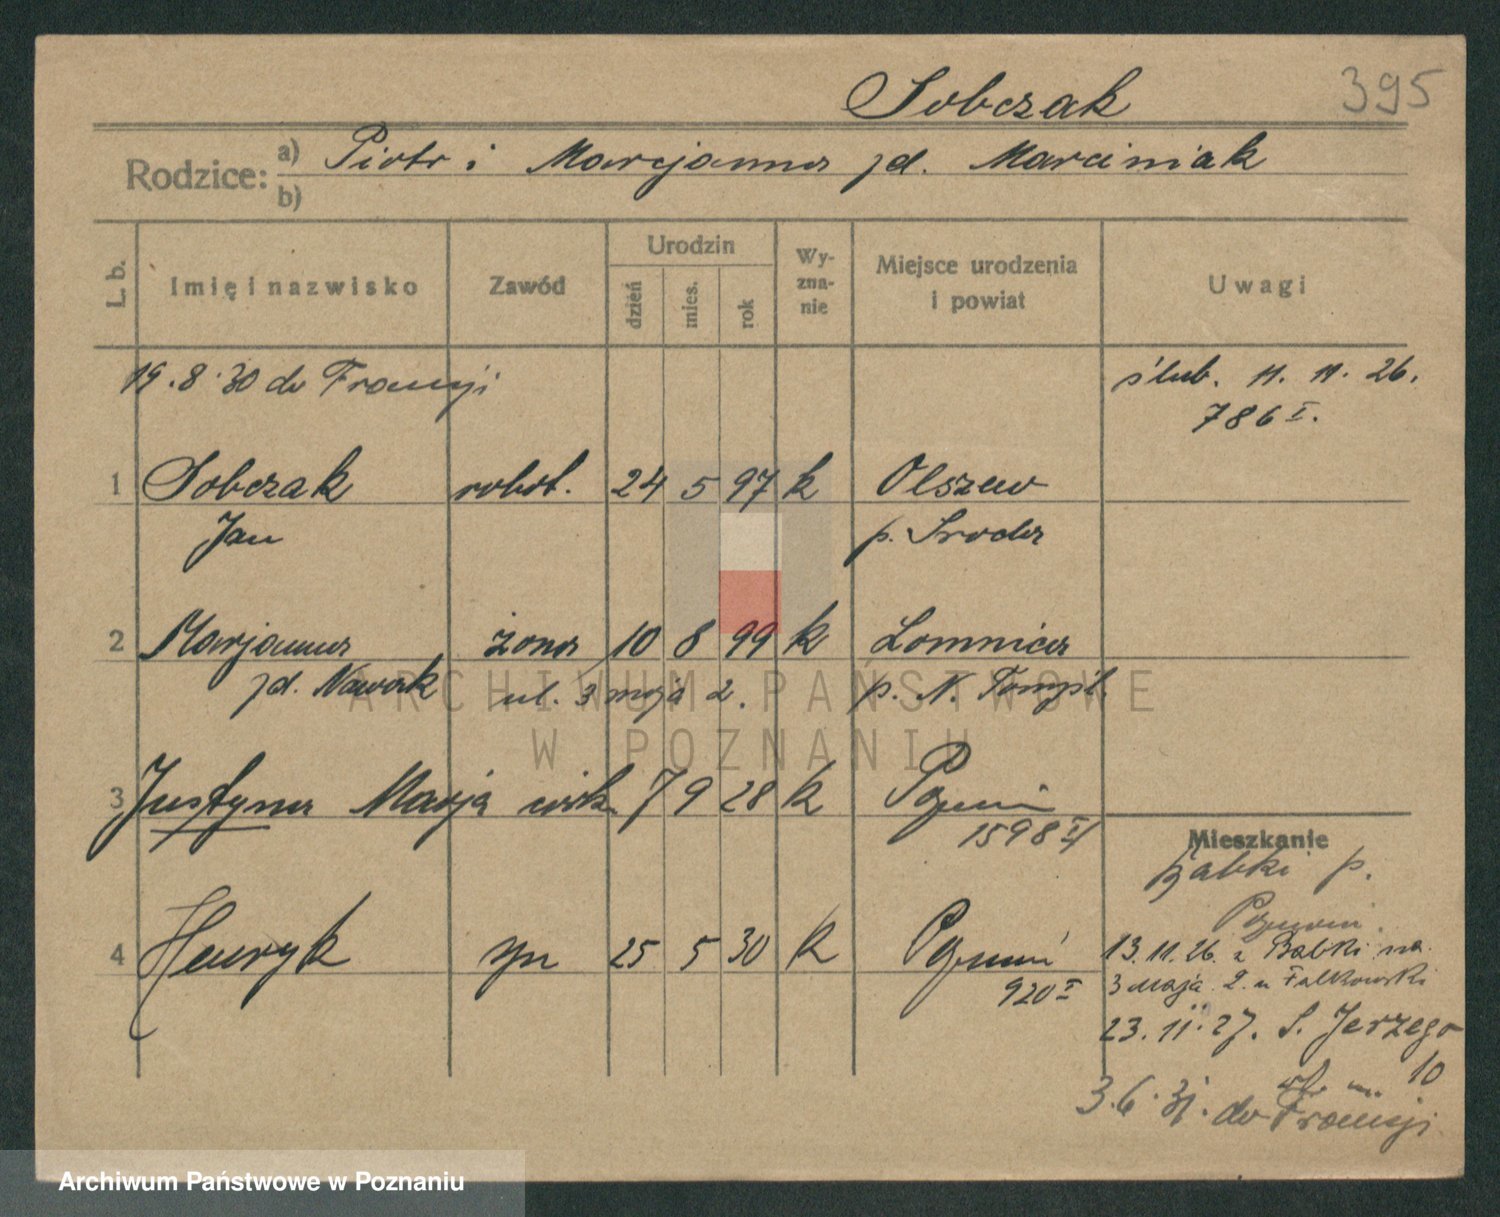 Sobczak 395
Rodzice: a) Piotr i Marcjanna zd. Marciniak
b)
L. b. Imię i nazwisko Zawód Urodzin dzień mies. rok Wyznanie Miejsce urodzenia i powiat Uwagi
19.8.30 do Francji ślub. 11. 11. 26.
786 I.
1 Sobczak robot. 24 5 97 k Olszewo
Jan p. Środa
2 Marjanna żona 10 8 99 k Łomnica
zd. Nowak ul. 3 maja 2. p. N. Tomyśl
3 Justyna Marja córk. 7 9 28 k Poznań
1598 II
Mieszkanie
Babki p.
Poznań.
4 Henryk syn 25 5 30 k Poznań
920 I
13.11.26. z Babki na
3 Maja 2. u Falkowski
23.11.27. S. Jerzego
10
3.6.31. do Francji
ARCHIWUM PAŃSTWOWE
W POZNANIU
Archiwum Państwowe w Poznaniu